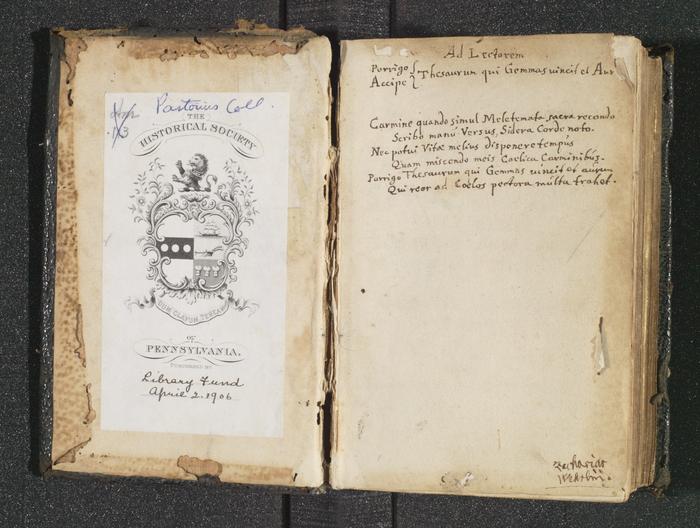 Pastorius Coll.
THE
HISTORICAL SOCIETY
DUM CLAVUM TENEAM
OF
PENNSYLVANIA,
PURCHASED BY
Library Fund
April 2. 1906
Ad Lectorem
Porrigo { Thesaurum qui Gemmas vincit et Aur
Accipe {
Carmine quando simul Meletemata, sacra recondo
Scribo manu Versus, Sidera Corde noto.
Nec potui Vitæ melius disponere tempus
Quam miscendo meis Coelica Carminibus.
Porrigo Thesaurum qui Gemmas vincit et aurum
Qui reor ad Coelos pectora multa trahet.
Zacharias